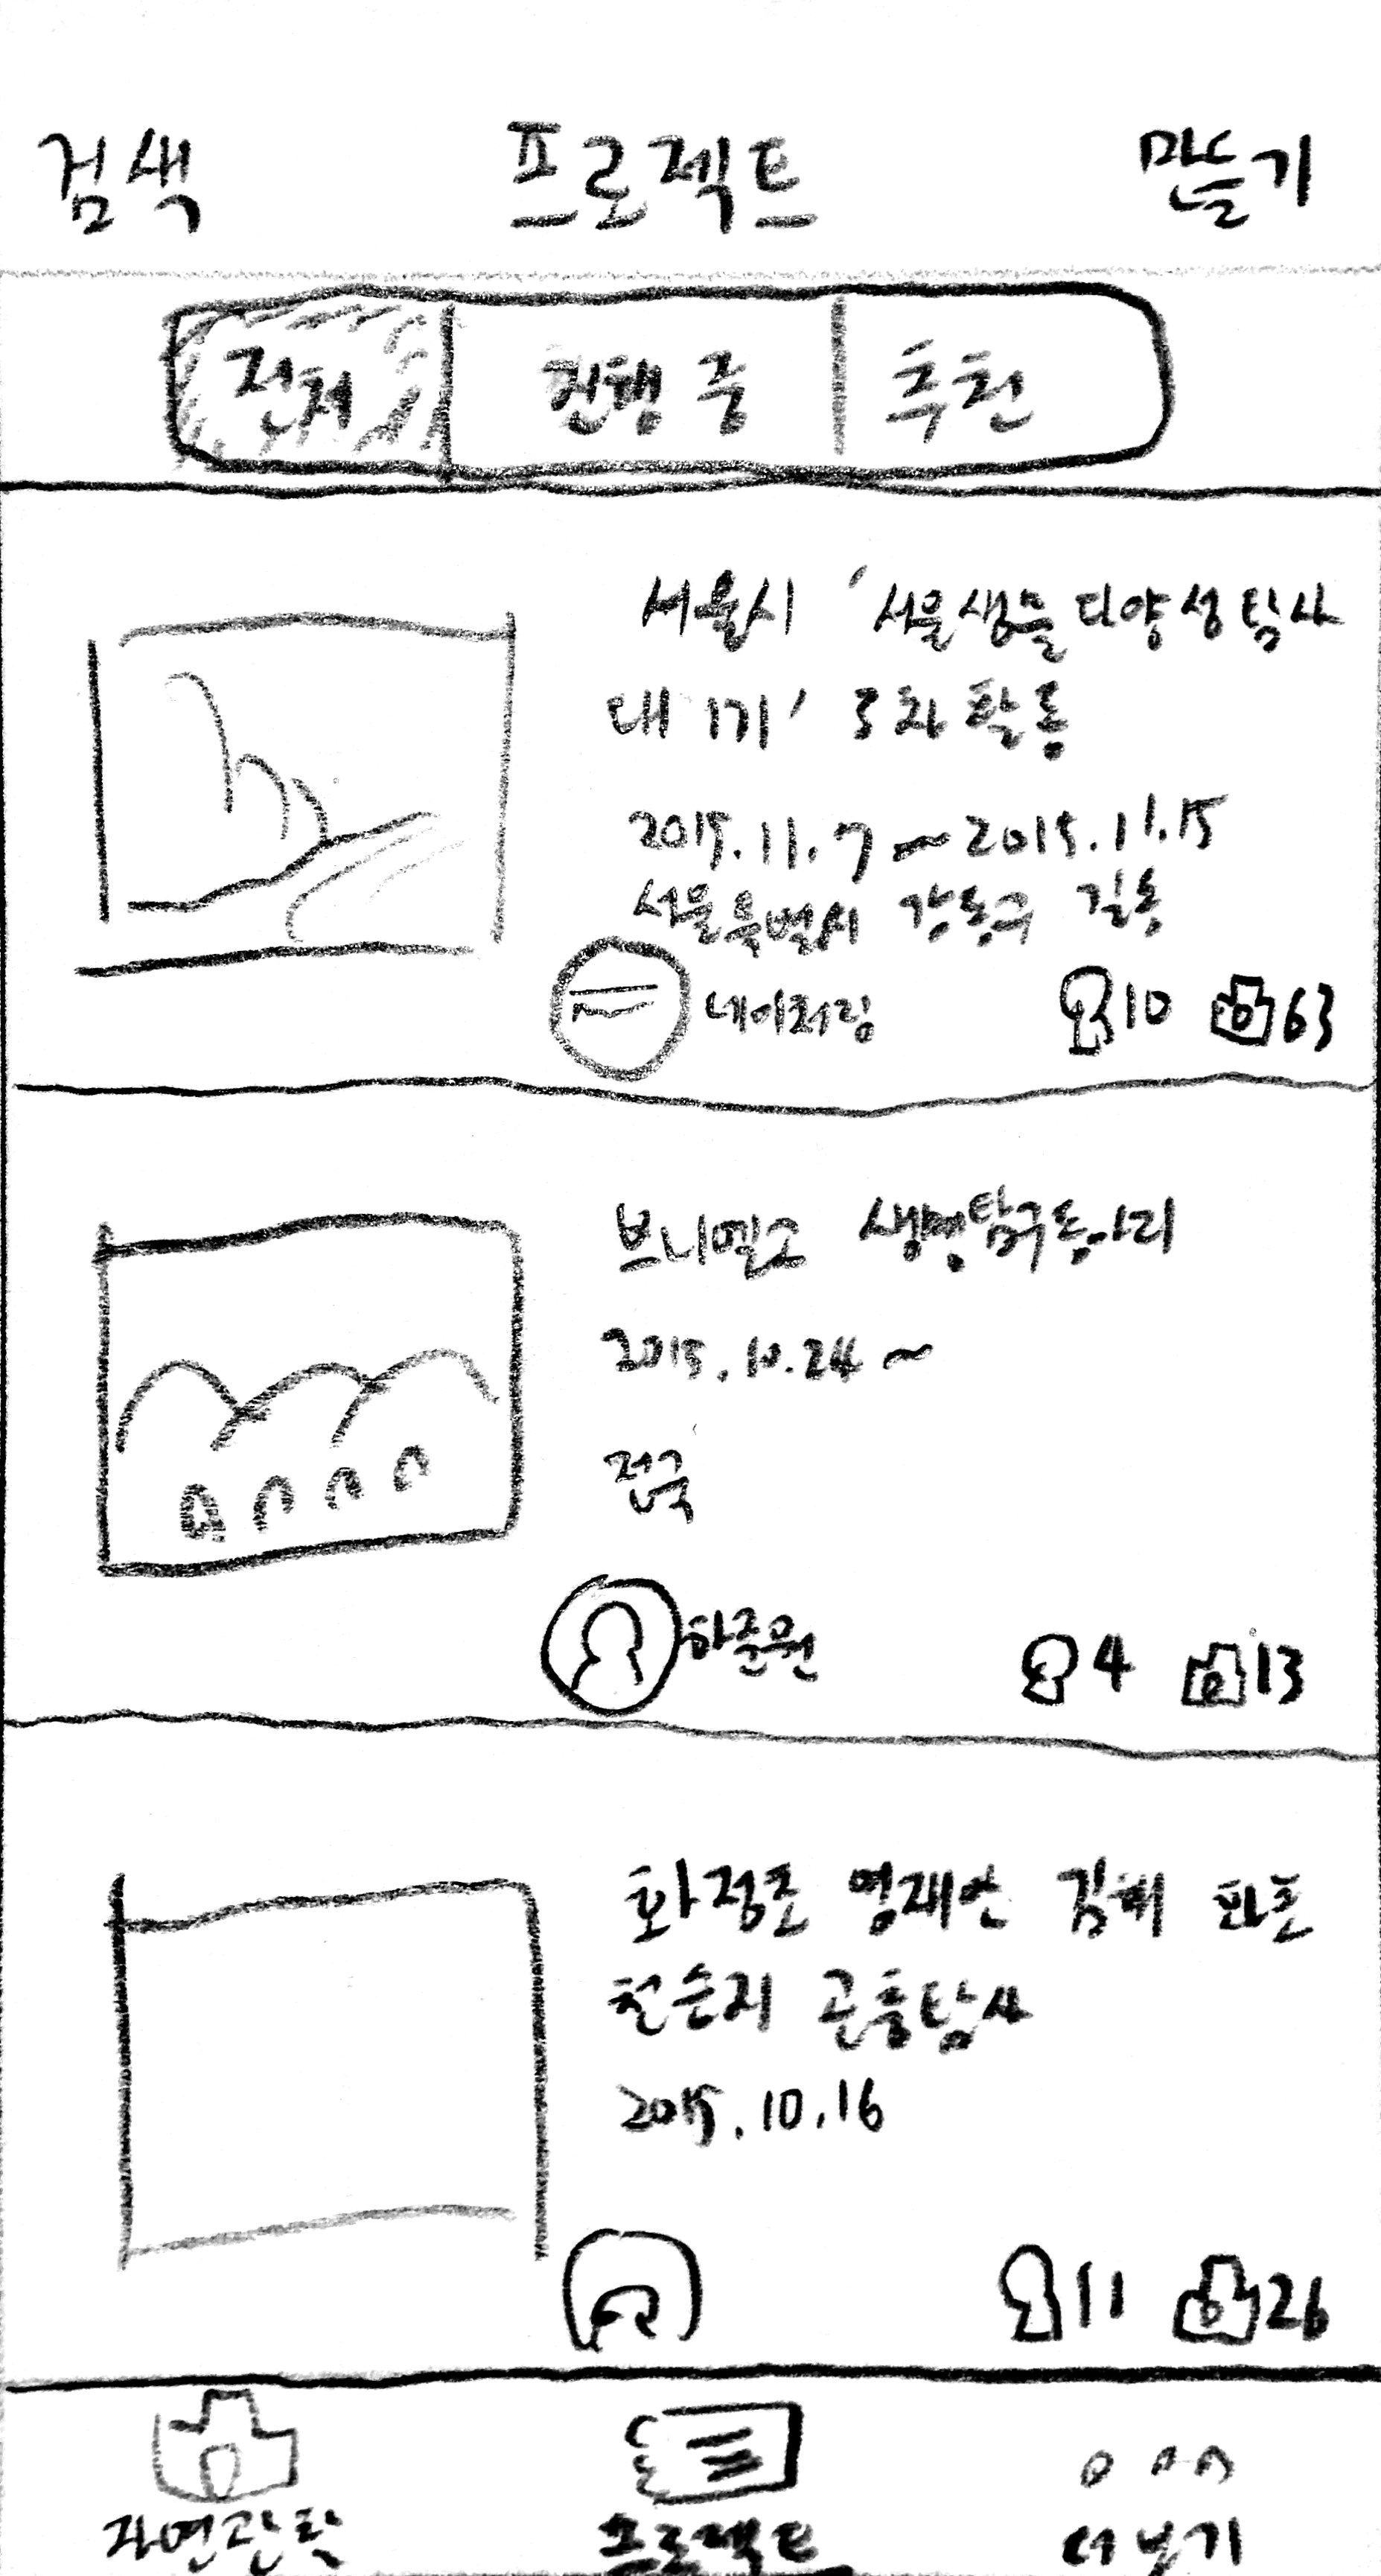 검색 프로젝트 만들기
전체 진행 중 추천
서울시 '서울생물다양성탐사
대 1기' 3차 활동
2015.11.7 ~ 2015.11.15
서울특별시 강동구 길동
네이처링 10 63
브니엘고 생명탐구동아리
2015.10.24 ~
전국
하준원 4 13
화정초 영재반 김해 화포
천습지 곤충탐사
2015.10.16
11 26
자연관찰 프로젝트 더보기